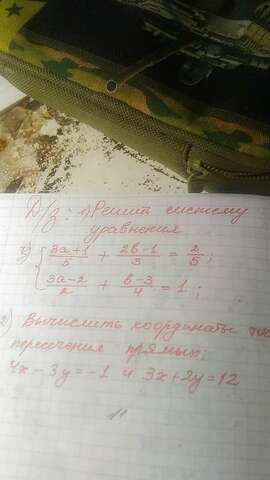 D/z: 1) Решить систему
уравнения
{ (3a-1)/5 + (2b-1)/3 = 2/5;
(3a-2)/2 + (b-3)/4 = 1;
2) Вычислить координаты
пересечения прямых;
4x-3y=-1 и 3x+2y=12